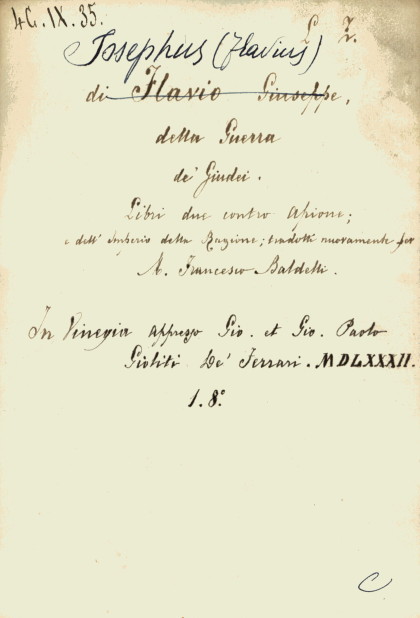 4G. IX. 35.
L 2.
Josephus (Flavius)
di Flavio Giuseppe,
della Guerra
de' Giudei.
Libri due contro Apione;
e dell' Imperio della Ragione; tradotti nuovamente per
M. Francesco Baldelli.
In Vinegia appresso Gio. et Gio. Paolo
Gioliti De' Ferrari. MDLXXXII.
1. 8°.
C